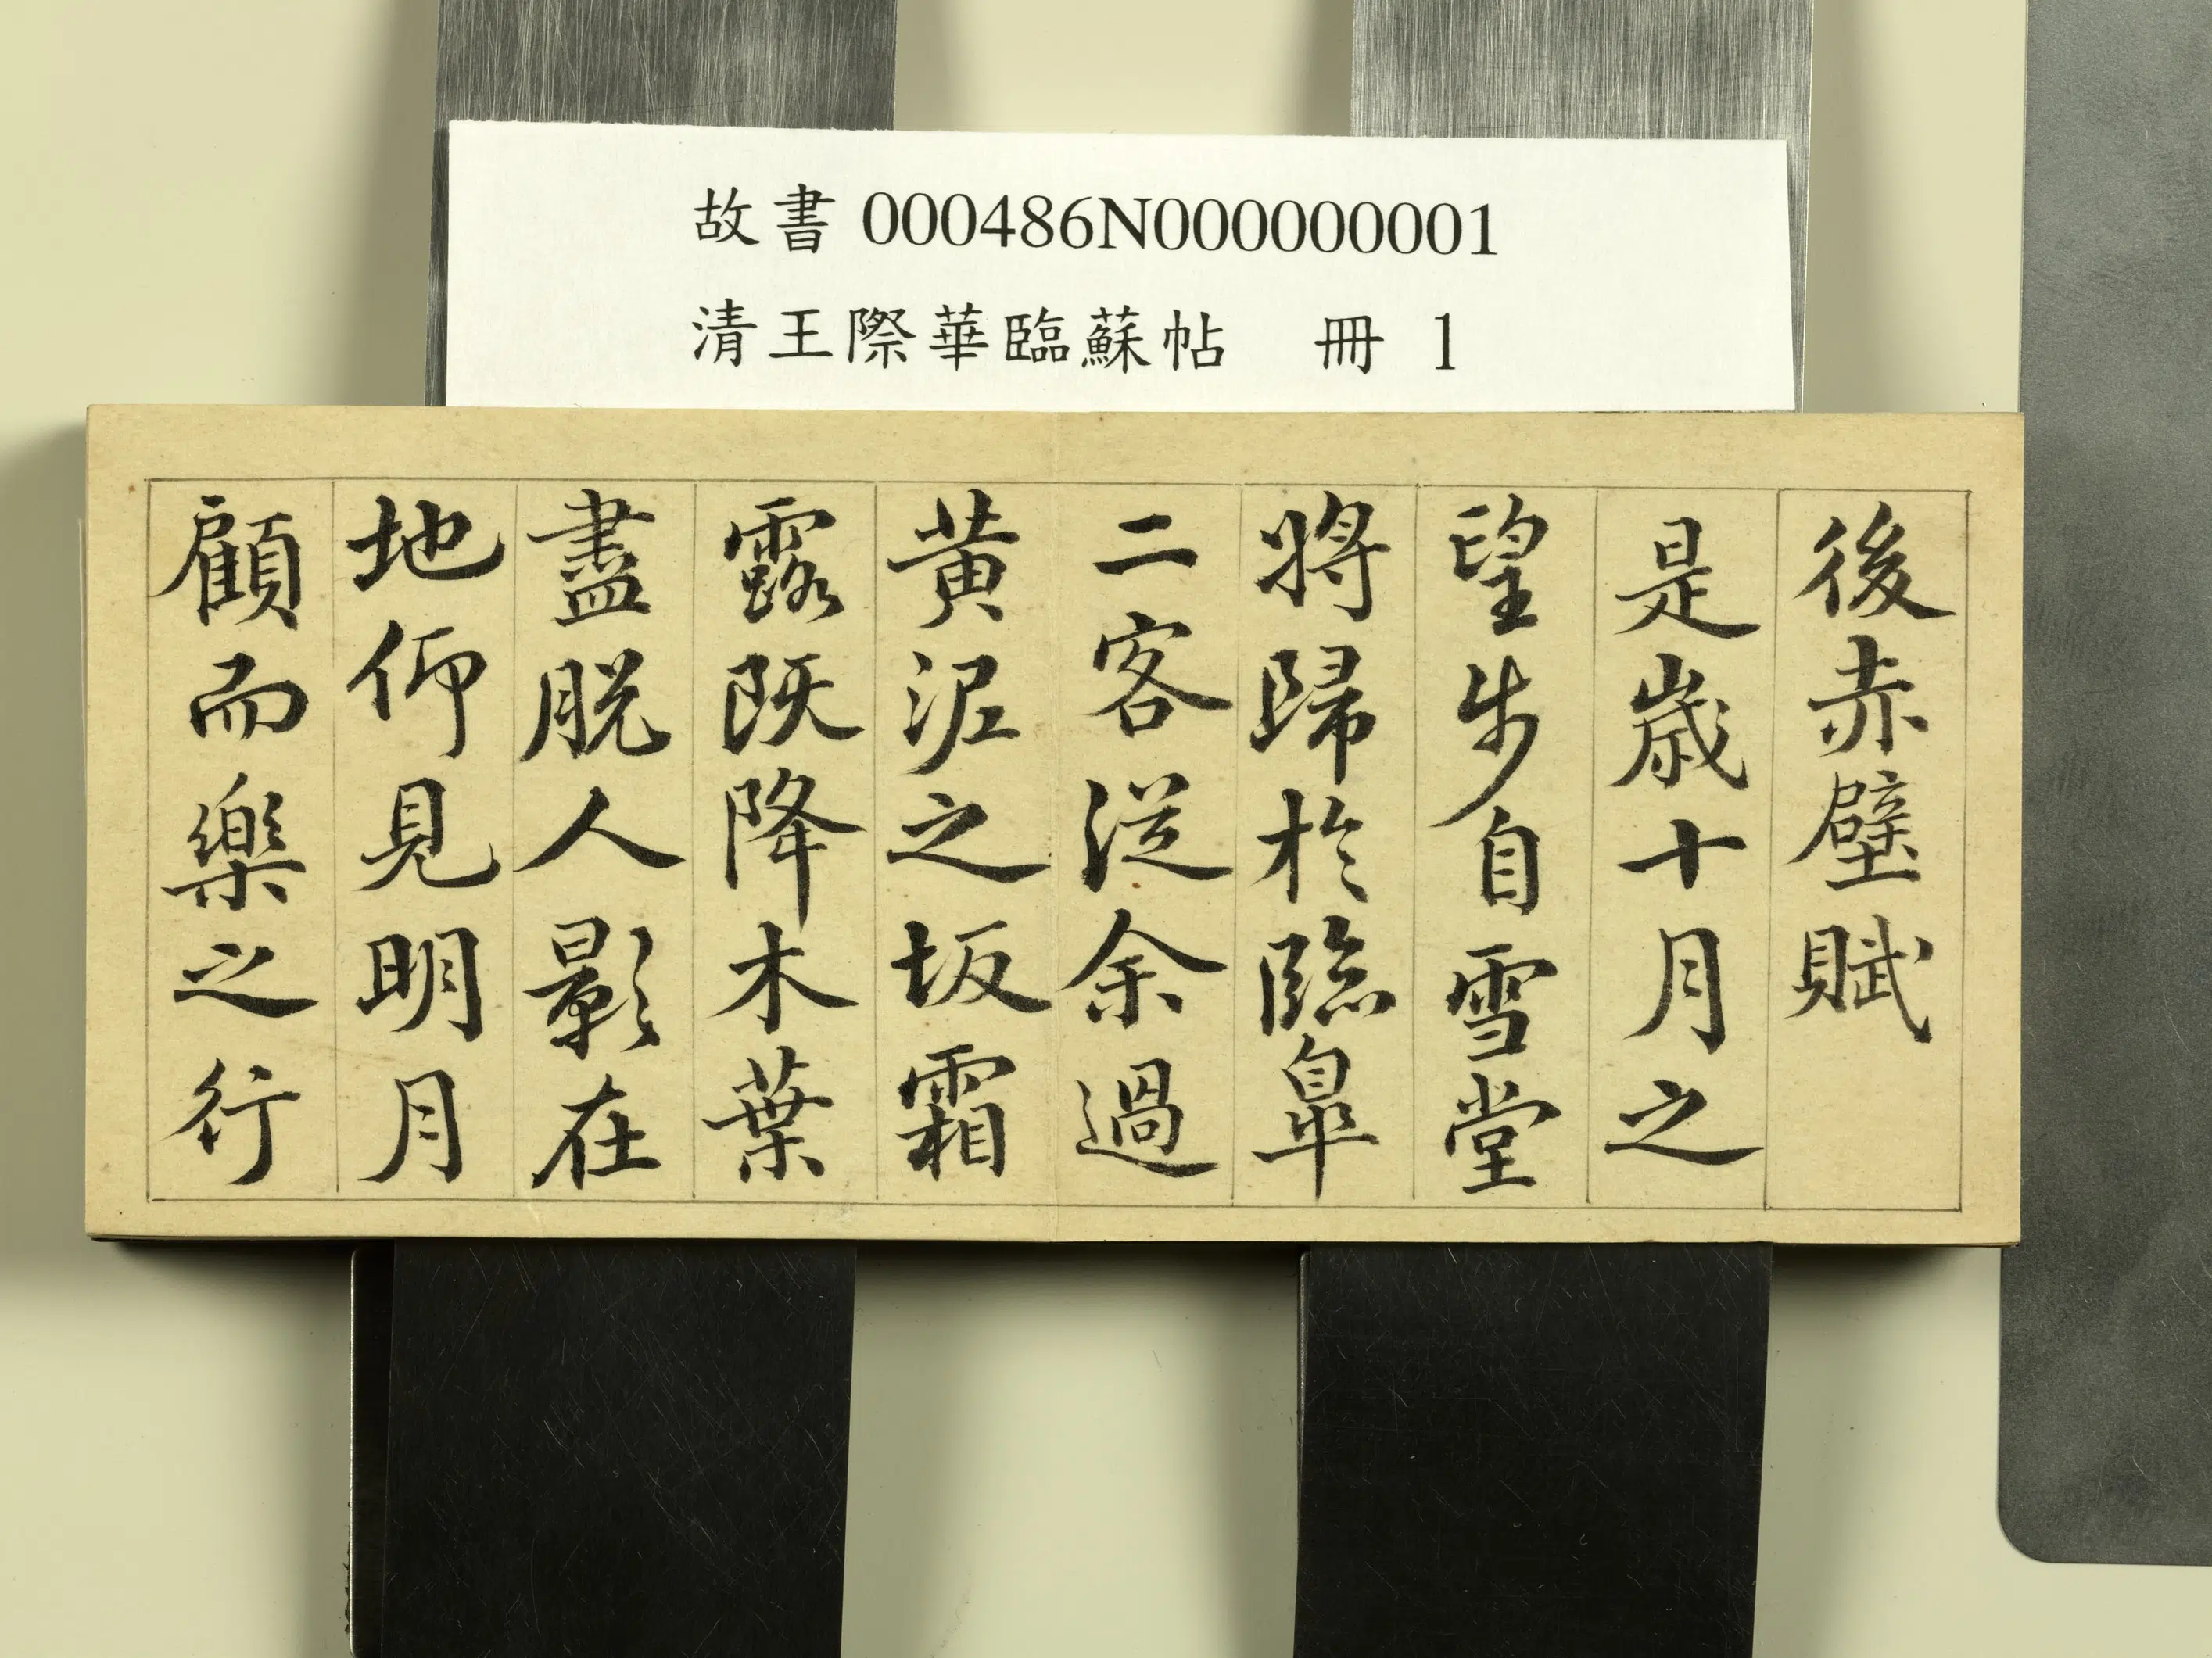 故書000486N000000001
清王際華臨蘇帖 冊 1
後赤壁賦
是歲十月之
望步自雪堂
將歸於臨皋
二客從余過
黃泥之坂霜
露既降木葉
盡脫人影在
地仰見明月
顧而樂之行